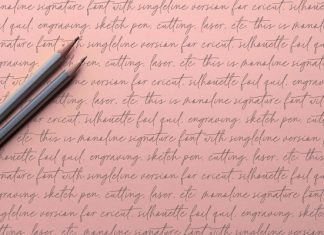 is monoline signature font with singleline version for cricut, silhouette foil quil, e
engraving, sketch pen, cutting, laser, etc. this is monoline
signature font with singleline version for cricut, silhouette
foil quil, engraving, sketch pen,
cutting, laser, etc. this is monoline signature font
with singleline version for cricut, silhouette foil quil, eng
engraving, sketch pen, cutting, laser, etc. this is monoline sig
nature font with singleline version for cricut, silhouette foil
quil, engraving, sketch pen, cutting, laser, etc. this is monoline
signature font with singleline version for cricut, silhouette foil quil, engraving
etc. this is monoline signature font with singleline version for
cutting, laser, etc. this is monoline signature font with
foil quil, engraving, sketch pen, cutting, laser, etc. this is mono